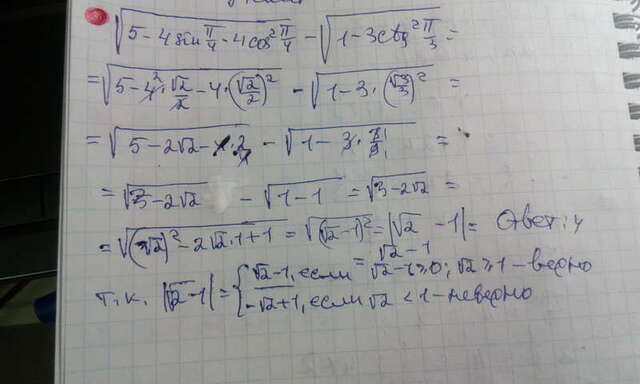 √(5-4sin π/4 - 4cos² π/4) - √(1-3ctg² π/3) =
= √(5-4·√2/2 - 4·(√2/2)²) - √(1-3·(√3/3)²) =
= √(5-2√2-2) - √(1-3·3/9) =
= √(3-2√2) - √(1-1) = √(3-2√2) =
= √((√2)²-2√2·1+1) = √((√2-1)²) = |√2 -1| = Ответ: 4
= √2-1
т.к. |√2-1| = { √2-1, если √2-1≥0; √2≥1 - верно
-√2+1, если √2 <1 - неверно